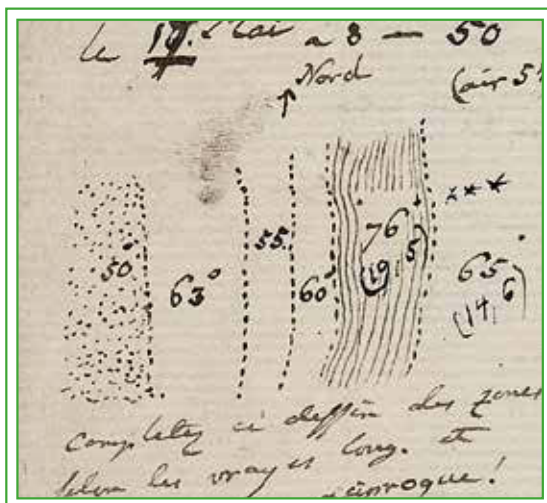 le 19. Mai a 8 — 50
Nord (air 5
50° 63° 55. 60° 76 65°
(19,5) (14,6)
completez ce dessin des zones
selon les vrayes long. et